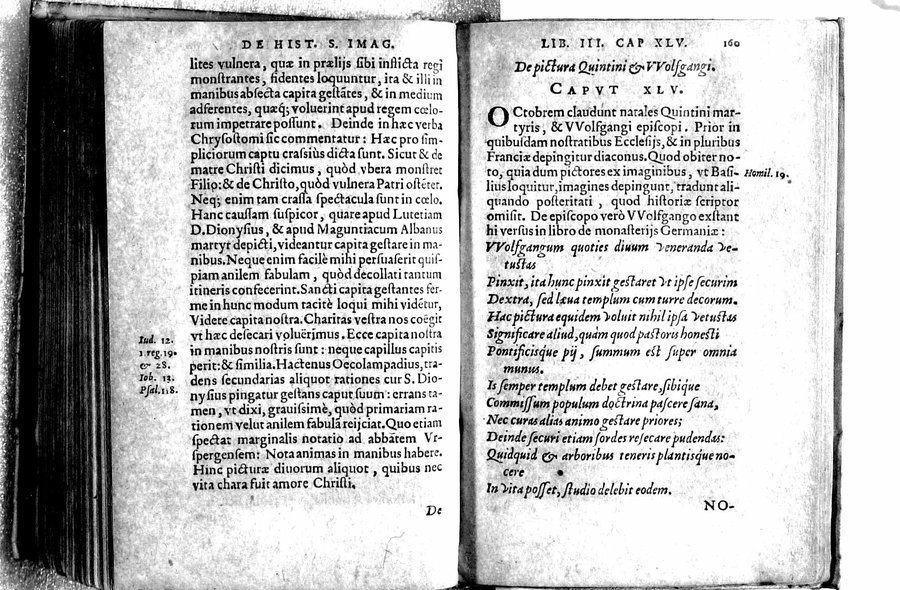 DE HIST. S. IMAG.
lites vulnera, quæ in prælijs sibi inflicta regi
monstrantes, fidentes loquuntur, ita & illi in
manibus abſecta capita geſtãtes, & in medium
adferentes, quæq; voluerint apud regem cœlo-
rum impetrare poſſunt. Deinde in hæc verba
Chryſoſtomi ſic commentatur: Hæc pro ſim-
pliciorum captu craſſiùs dicta ſunt. Sicut & de
matre Chriſti dicimus, quòd vbera monſtret
Filio: & de Chriſto, quòd vulnera Patri oſtẽtet.
Neq; enim tam craſſa ſpectacula ſunt in cœlo.
Hanc cauſſam ſuſpicor, quare apud Lutetiam
D. Dionyſius, & apud Maguntiacum Albanus
martyr depicti, videantur capita geſtare in ma-
nibus. Neque enim facilè mihi perſuaſerit quiſ-
piam anilem fabulam, quòd decollati tantum
itineris confecerint. Sancti capita geſtantes fer-
me in hunc modum tacitè loqui mihi vidẽtur,
Videte capita noſtra. Charitas veſtra nos coëgit
vt hæc deſecari voluerimus. Ecce capita noſtra
in manibus noſtris ſunt: neque capillus capitis
perit: & ſimilia. Hactenus Oecolampadius, tra-
dens ſecundarias aliquot rationes cur S. Dio-
nyſius pingatur geſtans caput ſuum: errans ta-
men, vt dixi, grauiſſimè, quòd primariam ra-
tionem velut anilem fabulã reijciat. Quo etiam
ſpectat marginalis notatio ad abbãtem Vr-
ſpergenſem: Nota animas in manibus habere.
Hinc picturæ diuorum aliquot, quibus nec
vita chara fuit amore Chriſti.
De
Iud. 12.
1. reg. 19.
& 28.
Iob. 13.
Pſal. 118.
LIB. III. CAP XLV. 160
De pictura Quintini & VVolfgangi.
CAPVT XLV.
OCtobrem claudunt natales Quintini mar-
tyris, & VVolfgangi epiſcopi. Prior in
quibuſdam noſtratibus Eccleſijs, & in pluribus
Franciæ depingitur diaconus. Quod obiter no-
to, quia dum pictores ex imaginibus, vt Baſi-
lius loquitur, imagines depingunt, tradunt ali-
quando poſteritati, quod hiſtoriæ ſcriptor
omiſit. De epiſcopo verò VVolfgango exſtant
hi verſus in libro de monaſterijs Germaniæ:
VVolfgangum quoties diuum veneranda ve-
tuſtas
Pinxit, ita hunc pinxit geſtaret vt ipſe ſecurim
Dextra, ſed læua templum cum turre decorum.
Hac pictura equidem voluit nihil ipſa vetuſtas
Significare aliud, quàm quod paſtoris honeſti
Pontificiſque pij, ſummum eſt ſuper omnia
munus.
Is ſemper templum debet geſtare, ſibique
Commiſſum populum doctrina paſcere ſana,
Nec curas alias animo geſtare priores;
Deinde ſecuri etiam ſordes reſecare pudendas:
Quidquid & arboribus teneris plantisque no-
cere
In vita poſſet, ſtudio delebit eodem.
NO-
Homil. 19.